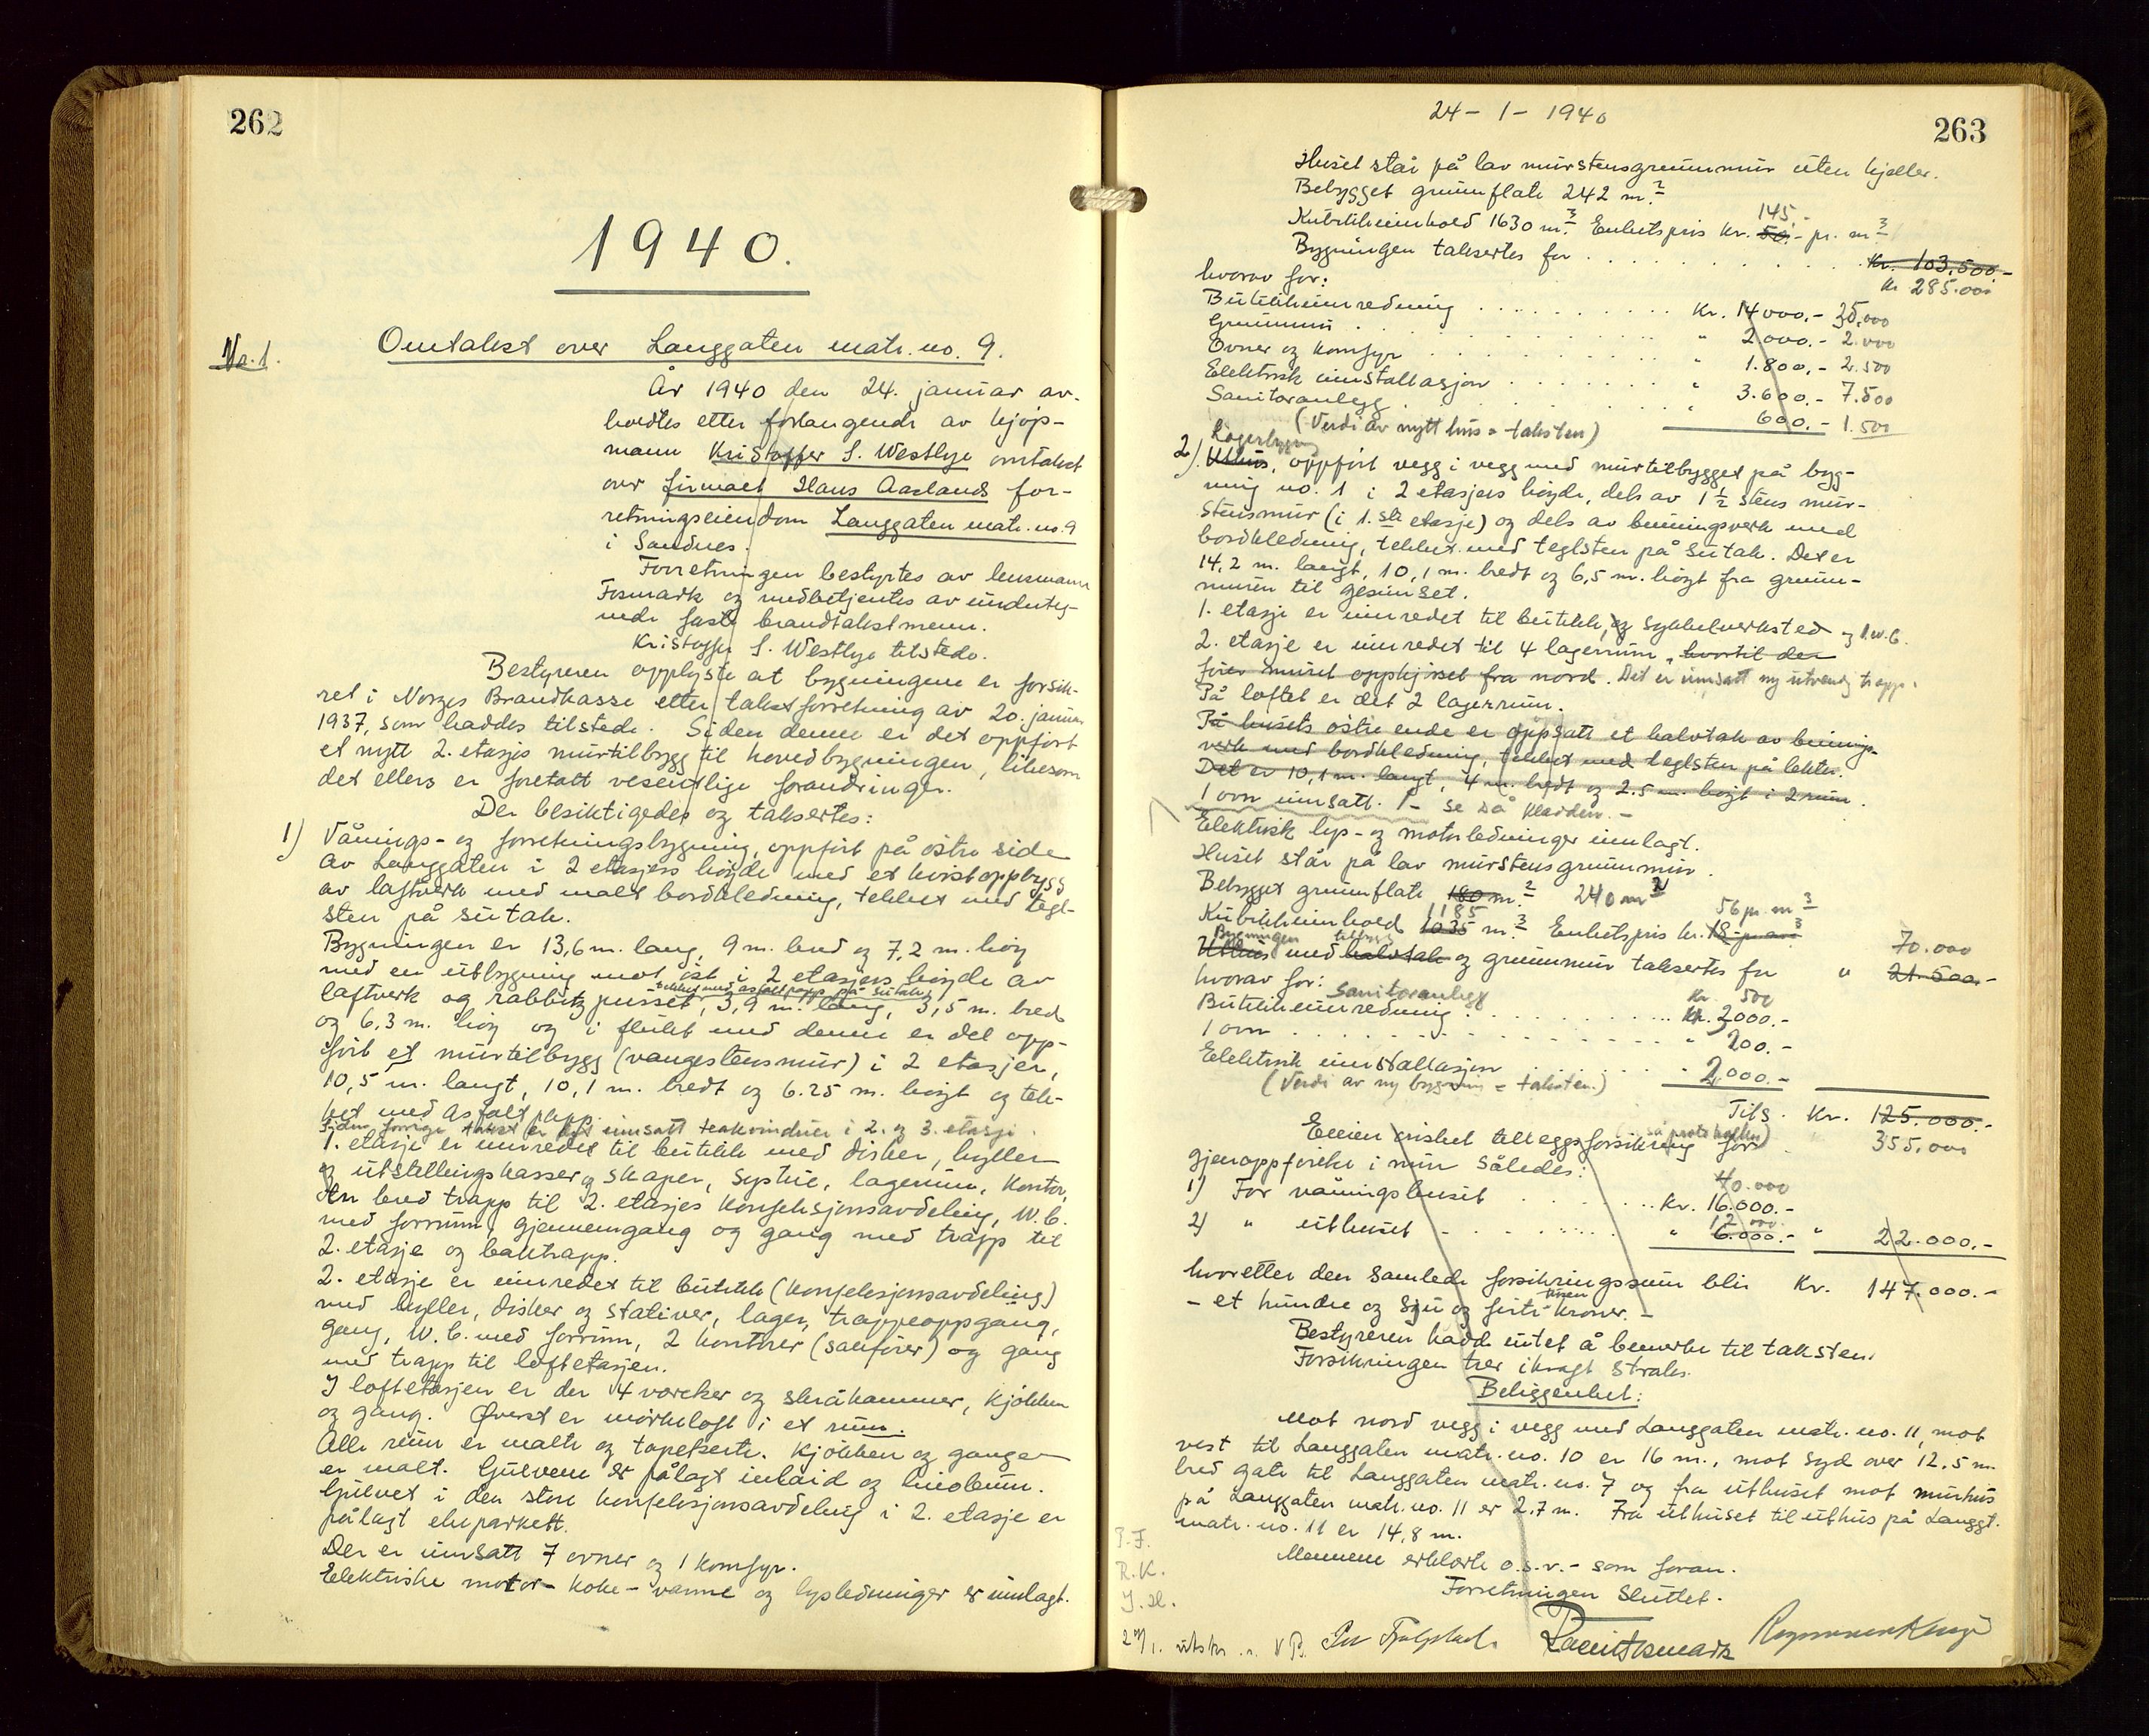 262
1940.
No. 1.
Omtakst over Langgaten matr. no. 9.
År 1940 den 24. januar av-
holdtes etter forlangende av kjøp-
mann Kristoffer S. Westlye omtakst
over firmaet Hans Aarlands for-
retningseiendom Langgaten matr. no. 9
i Sandnes.
Forretningen bestyrtes av lensmann
Fosmark og medbetjentes av underteg-
nede faste brandtakstmenn.
Kristoffer S. Westlye tilstede.
Bestyreren opplyste at bygningene er forsik-
ret i Norges Brandkasse etter takstforretning av 20. januar
1937, som haddes tilstede. Siden denne er det oppført
et nytt 2. etasjes murtilbygg til hovedbygningen, likesom
det ellers er foretatt vesentlige forandringer.
Der besiktigedes og taksertes:
1) Vånings- og forretningsbygning, oppført på østre side
av Langgaten i 2 etasjers høyde med et kvistoppbygg
av laftverk med malt bordkledning, tekket med tegl-
sten på sutak.
Bygningen er 13,6 m. lang, 9 m. bred og 7,2 m. høy
med en utbygning mot øst i 2 etasjers høyde av
tekket med asfaltpapp på sutak,
laftverk og rabbitzpusset, 3,9 m. lang, 3,5 m. bred
og 6,3 m. høy og i flukt med denne er det opp-
ført et murtilbygg (vangestensmur) i 2 etasjer,
10,5 m. langt, 10,1 m. bredt og 6.25 m. høyt og tek-
ket med asfaltpapp.
Siden forrige takst er det innsatt teakvinduer i 2. og 3. etasje.
1. etasje er innredet til butikk med disker, hyller
og utstellingskasser og skaper, systue, lagerrum, kontor,
en bred trapp til 2. etasjes konfeksjonsavdeling, W.C.
med forrum, gjennemgang og gang med trapp til
2. etasje og baktrapp.
2. etasje er innredet til butikk (konfeksjonsavdeling)
med hyller, disker og stativer, lager, trappeoppgang,
gang, W.C. med forrum, 2 kontorer (sakfører) og gang
med trapp til loftetasjen.
I loftetasjen er der 4 værelser og skråkammer, kjøkken
og gang. Øverst er mørkeloft i et rum.
Alle rum er malte og tapetserte. Kjøkken og ganger
er malt. Gulvene er pålagt inlaid og linoleum.
Gulvet i den store konfeksjonsavdeling i 2. etasje er
pålagt ekeparkett.
Der er innsatt 7 ovner og 1 komfyr.
Elektriske motor- koke- varme og lysledninger er innlagt.
24 - 1 - 1940
263
Huset står på lav murstensgrunnmur uten kjeller.
Bebygget grunnflate 242 m.2
145.-
Kubikkinnhold 1630 m.3 Enhetspris kr. 50.- pr. m3
Bygningen taksertes for . . . . . Kr. 103.500.-
kr 285.000
hvorav for:
Butikkinnredning . . . . . Kr. 14000.- 35.000
Grunnmur . . . . . " 2000.- 2.000
Ovner og komfyr . . . . . " 1.800.- 2.500
Elektrisk innstallasjon . . . . . " 3.600.- 7.500
Sanitæranlegg . . . . . " 600.- 1.500
(Verdi av nytt hus = taksten)
Lagerbygning
2). Uthus, oppført vegg i vegg med murtilbygget på byg-
ning no. 1 i 2 etasjers høyde, dels av 1 1/2 stens mur-
stensmur (i 1.ste etasje) og dels av binningsverk med
bordkledning, tekket med teglsten på sutak. Det er
14,2 m. langt, 10,1 m. bredt og 6,5 m. høyt fra grunn-
muren til gesimset.
1. etasje er innredet til butikk, og sykkelverksted og 1 w.c.
2. etasje er innredet til 4 lagerrum, hvortil der
fører muret oppkjørsel fra nord. Det er innsatt ny utvendig trapp.
På loftet er det 2 lagerrum.
På husets østre ende er oppsatt et halvtak av binnings-
verk med bordkledning, tekket med teglsten på lekter.
Det er 10,1 m. langt, 4 m. bredt og 2.5 m. høyt i 2 rum.
1 ovn innsatt. - se så kladden. -
Elektrisk lys- og motorledninger innlagt.
Huset står på lav murstensgrunnmur.
Bebygget grunnflate 180 m.2 240 m2
1185 56 pr. m3
Kubikkinnhold 1035 m.3 Enhetspris kr. 18 pr. m3
Bygningen tilbygg
Uthus med halvtak og grunnmur taksertes for " 21.500.-
70.000
hvorav for: Sanitæranlegg kr. 500
Butikkinnredning . . . . . kr. 3000.-
1 ovn . . . . . " 200.-
Elektrisk innstallasjon . . . . . 2.000.-
(Verdi av ny bygning = taksten.)
Tils. Kr. 125.000.-
355.000
Eieren ønsket tilleggsforsikring for
gjenoppførelse i mur således:
40.000
1) For våningshuset . . . . . Kr. 16.000.-
12.000.
2) " uthuset . . . . . " 6.000.- " 22.000.-
hvoretter den samlede forsikringssum blir Kr. 147.000.-
- et hundre og syv og førti tusen kroner. -
Bestyreren hadde intet å bemerke til taksten.
Forsikringen trer ikraft straks.
Beliggenhet:
Mot nord vegg i vegg med Langgaten matr. no. 11, mot
vest til Langgaten matr. no. 10 er 16 m., mot syd over 12,5 m.
bred gate til Langgaten matr. no. 7 og fra uthuset mot murhus
på Langgaten matr. no. 11 er 2,7 m. Fra uthuset til uthus på Langgt.
matr. no. 11 er 14,8 m.
Mennene erklærte o.s.v. - som foran.
Forretningen sluttet.
P.F.
R.K.
J.H.